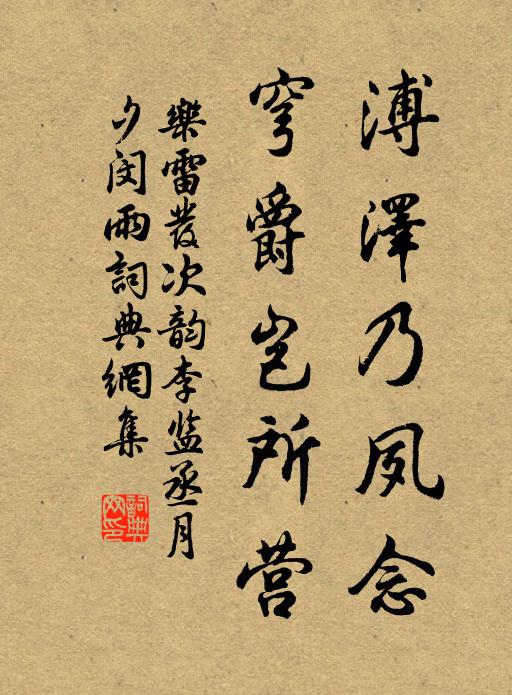 溥澤乃夙念
穹爵岂所营
樂雷發次韵李监丞月
夕闵雨詞典網集
詞典
网印